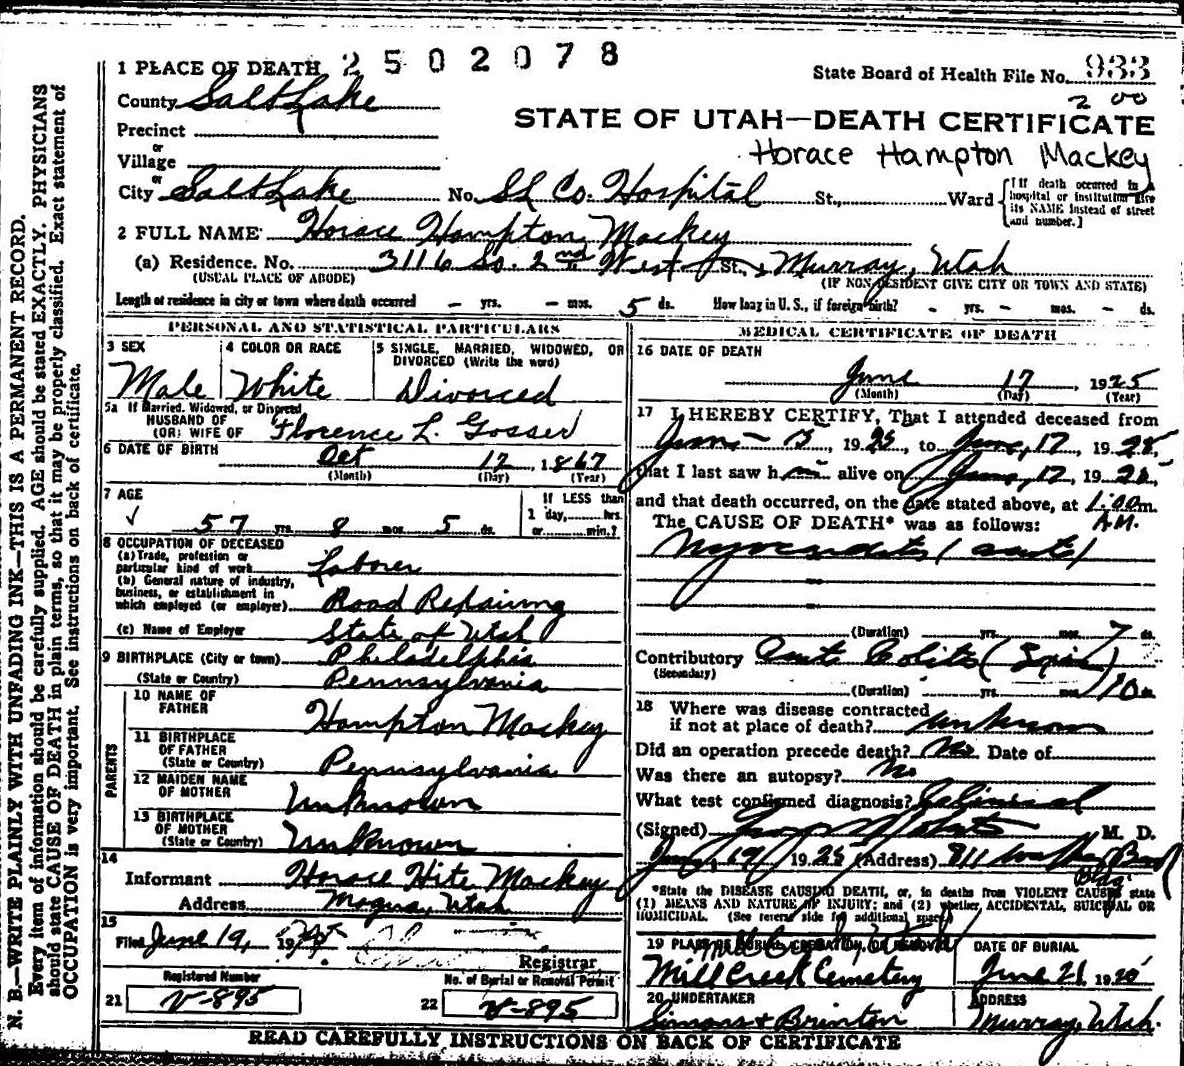 2502078
1 PLACE OF DEATH
State Board of Health File No. 933
County Salt Lake
2 00
STATE OF UTAH—DEATH CERTIFICATE
Precinct
or
Horace Hampton Mackey
Village
or
City Salt Lake No. SL Co. Hospital St., Ward
[If death occurred in a hospital or institution give its NAME instead of street and number.]
2 FULL NAME Horace Hampton Mackey
(a) Residence. No. 3116 So. 2nd West St., Murray, Utah
(USUAL PLACE OF ABODE) (IF NON-RESIDENT GIVE CITY OR TOWN AND STATE)
Length of residence in city or town where death occurred - yrs. - mos. 5 ds. How long in U. S., if foreign birth? - yrs. - mos. - ds.
PERSONAL AND STATISTICAL PARTICULARS
3 SEX
Male
4 COLOR OR RACE
White
5 SINGLE, MARRIED, WIDOWED, OR DIVORCED (Write the word)
Divorced
5a If Married, Widowed, or Divorced
HUSBAND OF
(OR) WIFE OF Florence L. Gosser
6 DATE OF BIRTH Oct 12, 1867
(Month) (Day) (Year)
7 AGE
57 yrs. 8 mos. 5 ds.
If LESS than
1 day, hrs.
or min.?
8 OCCUPATION OF DECEASED
(a) Trade, profession or
particular kind of work Laborer
(b) General nature of industry,
business, or establishment in
which employed (or employer) Road Repairing
(c) Name of Employer State of Utah
9 BIRTHPLACE (City or town) Philadelphia
(State or Country) Pennsylvania
PARENTS
10 NAME OF
FATHER Hampton Mackey
11 BIRTHPLACE
OF FATHER
(State or Country) Pennsylvania
12 MAIDEN NAME
OF MOTHER Unknown
13 BIRTHPLACE
OF MOTHER
(State or Country) Unknown
14
Informant Horace Hite Mackey
Address Magna, Utah
15
Filed June 19, 19
Registrar
Registered Number
21 V-895
No. of Burial or Removal Permit
22 V-895
MEDICAL CERTIFICATE OF DEATH
16 DATE OF DEATH
June 17, 1925
(Month) (Day) (Year)
17 I HEREBY CERTIFY, That I attended deceased from
19 25 to June, 17, 19 25,
that I last saw him alive on June, 17, 19 25,
and that death occurred, on the date stated above, at 1:00 m.
The CAUSE OF DEATH* was as follows: A.M.
Myocarditis (acute)
(Duration) yrs. mos. 7 ds.
Contributory Acute Colitis
(Secondary)
(Duration) yrs. mos. 10
18 Where was disease contracted
if not at place of death? unknown
Did an operation precede death? No Date of
Was there an autopsy? No
What test confirmed diagnosis? Clinical
(Signed) M. D.
19 1925 (Address) 811 Walker Bank
Bldg.
*State the DISEASE CAUSING DEATH, or, in deaths from VIOLENT CAUSES state
(1) MEANS AND NATURE OF INJURY; and (2) whether ACCIDENTAL, SUICIDAL OR
HOMICIDAL. (See reverse side for additional space.)
19 PLACE OF BURIAL, CREMATION, OR REMOVAL
Mill Creek Cemetery
DATE OF BURIAL
June 21 1925
20 UNDERTAKER
Simons & Brinton
ADDRESS
Murray, Utah.
READ CAREFULLY INSTRUCTIONS ON BACK OF CERTIFICATE
N. B.—WRITE PLAINLY WITH UNFADING INK—THIS IS A PERMANENT RECORD.
Every item of information should be carefully supplied. AGE should be stated EXACTLY. PHYSICIANS
should state CAUSE OF DEATH in plain terms, so that it may be properly classified. Exact statement of
OCCUPATION is very important. See instructions on back of certificate.